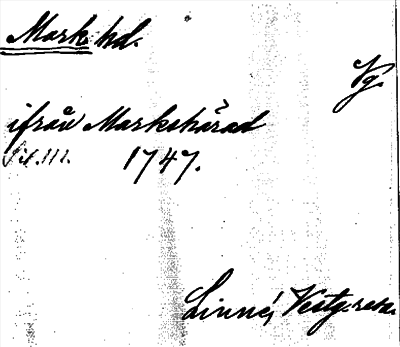 Mark hd.
Vg.
ifrån Markshärad
Sid. 111. 1747.
Linné, Vestg. resa.